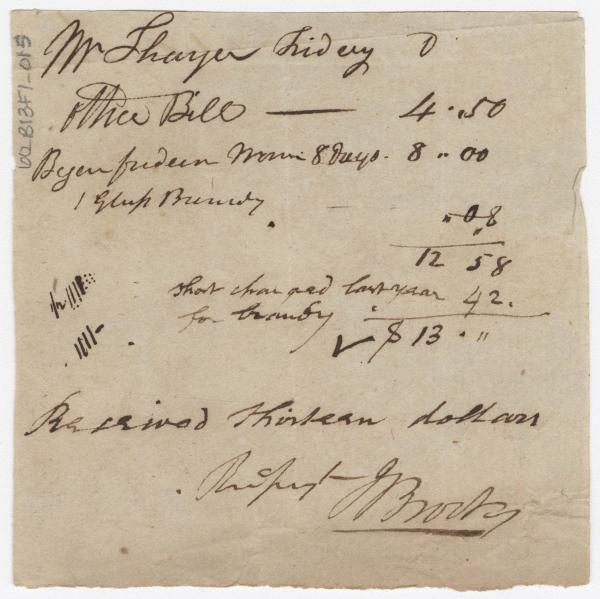 Mr Thayer Fidery D
office Bill — 4.50
8 Days. 8 " 00
1 Glass Brandy " 08
12 58
Short charged last year 42.
for brandy
✓ $ 13 . "
Received thirteen dollars
J Brooks
WLB13F1-015